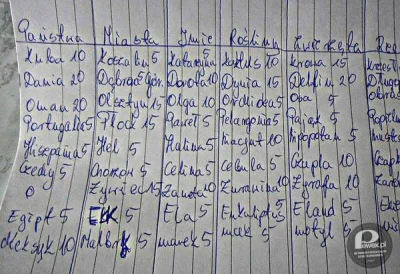 Państwa Miasta Imię Rośliny Zwierzęta
Kuba 10 Koszalin 5 Katarzyna 5 Kaktus 10 Krowa 15
Dania 20 Dorota 10 Dynia 15 Delfin 20
Oman 20 Olsztyn 15 Olga 10 Orchidea 5 Osa 5
Portugalia 5 Płock 15 Paweł 5 Pelargonia 5 Pająk 5
Hiszpania 5 Hel 5 Halina 5 Hiacynt 10 Hipopotam 5
Czechy 5 Chorzów 5 Celina 5 Cebula 5 Czapla 10
0 Żywiec 15 Żaneta 10 Żurawina 10 Żyrafa 10
Egipt 5 Ełk 5 Ela 5 Eukaliptus 5 Eland 5
Meksyk 10 Malbork 5 Marek 5 mak 5 motyl 5